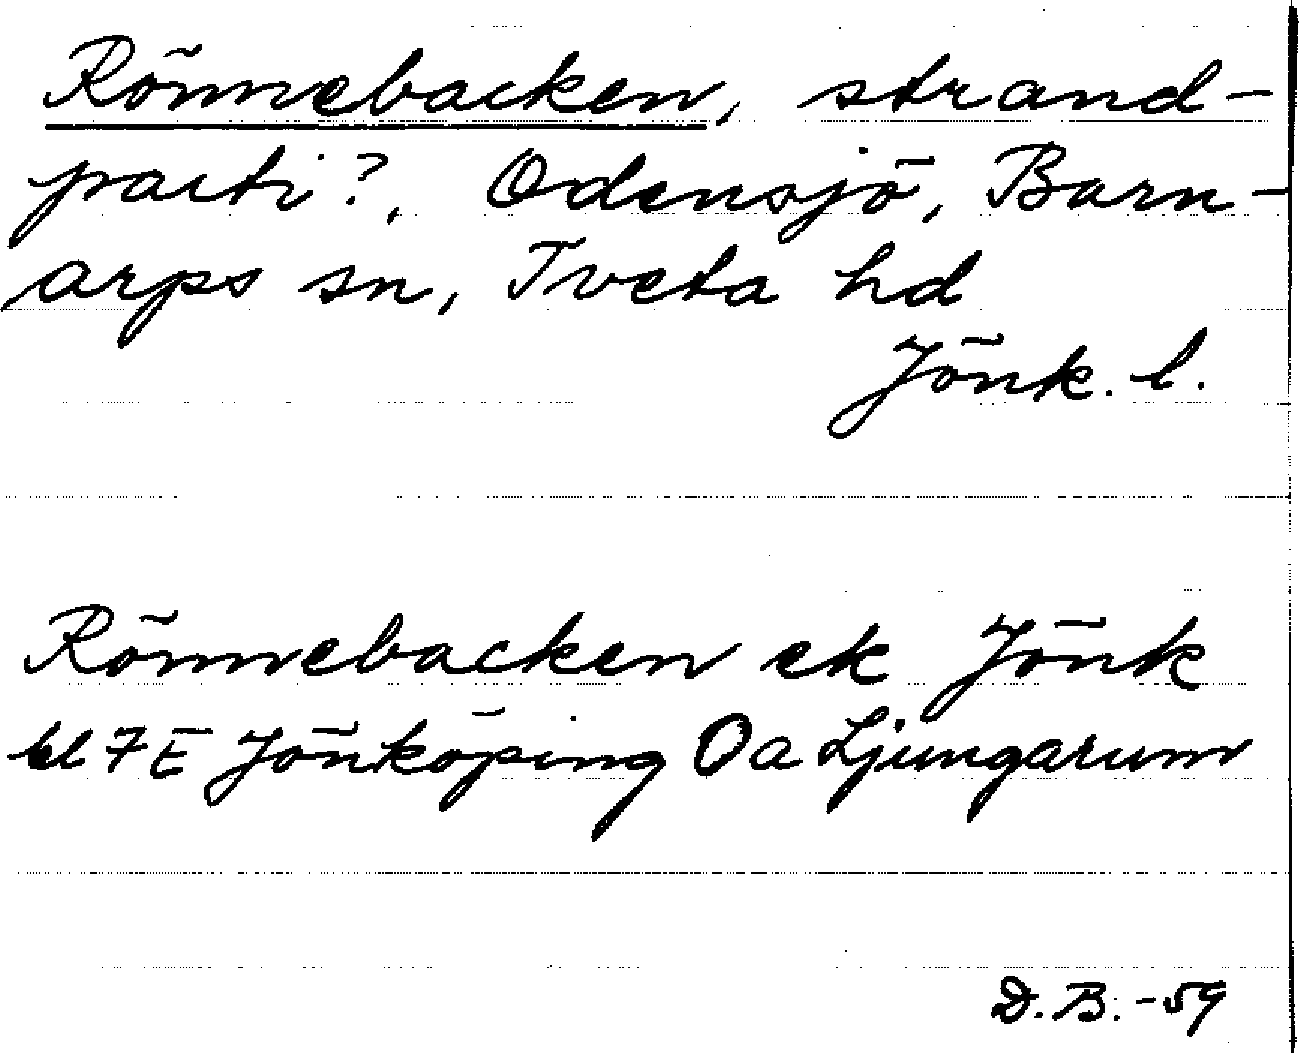 Rönnebacken, strand-
parti?, Odensjö, Barn-
arps sn, Tveta hd
Jönk. l.
Rönnebacken ek Jönk
bl 7E Jönköping Oa Ljungarum
D.B. -59